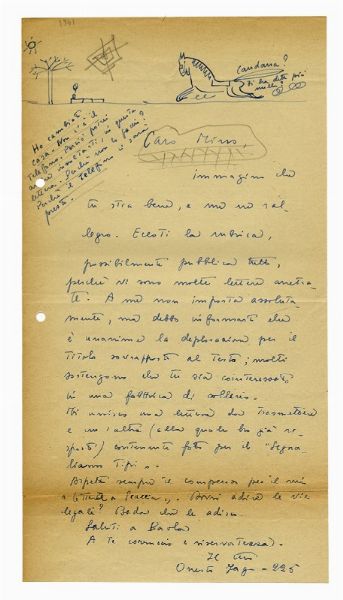 1941
Candana?
ti ha detto più
nulla?
Ho cambiato
casa. Non c'è il
telefono. Perciò potrei
Perché il telefono
presto.
Caro Mino,
immagino che
tu stia bene, e me ne ral-
legro. Eccoti la rubrica,
possibilmente pubblica tutto,
perché vi sono molte lettere arretra-
te. A me non importa assoluta-
mente, ma debbo informarti che
è unanime la deplorazione per il
titolo sovrapposto al testo; molti
sostengono che tu sia cointeressato
in una fabbrica di colliri.
Ti unisco una lettera da trasmettere
e un'altra (alla quale ho già ri-
sposto) contenente foto per il "Segna-
liamo Tipi".
Aspetto sempre il compenso per il mio
Dovrò adire le vie
legali? Bada che le adisco.
Saluti a Paola
A te comincio a riservatezza.
Il tuo